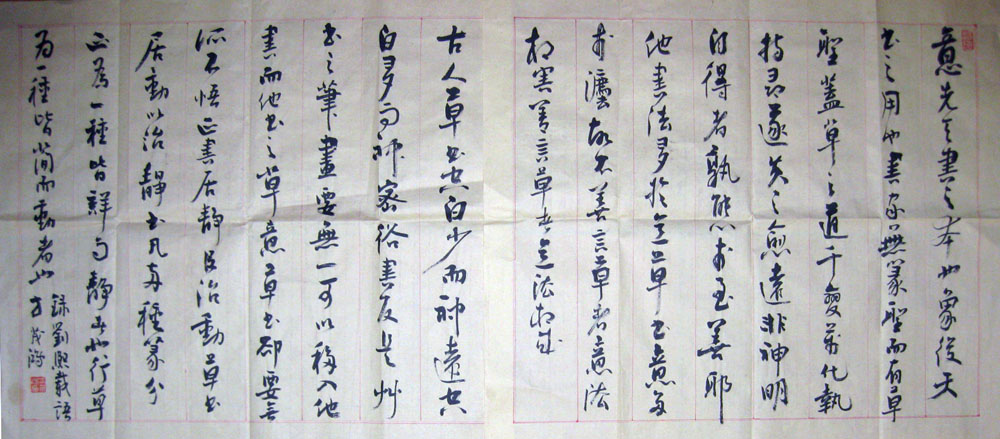 意先天書之本也象後天
書之用也書家無篆聖而有草
聖蓋草之道千變萬化執
持尋逐失之愈遠非神明
自得者孰能於至善耶
他書法多於意草書意多
於法故不善言草者意法
相害善言草者意法相成
古人草書空白少而神遠空
白多而神密俗書反是艸
書之筆畫要無一可以移入他
書而他書之草意草書卻要無
所不悟正書居靜以治動草書
居動以治靜書凡兩種篆分
正為一種皆詳而靜者也行草
為一種皆簡而動者也
錄劉熙載語